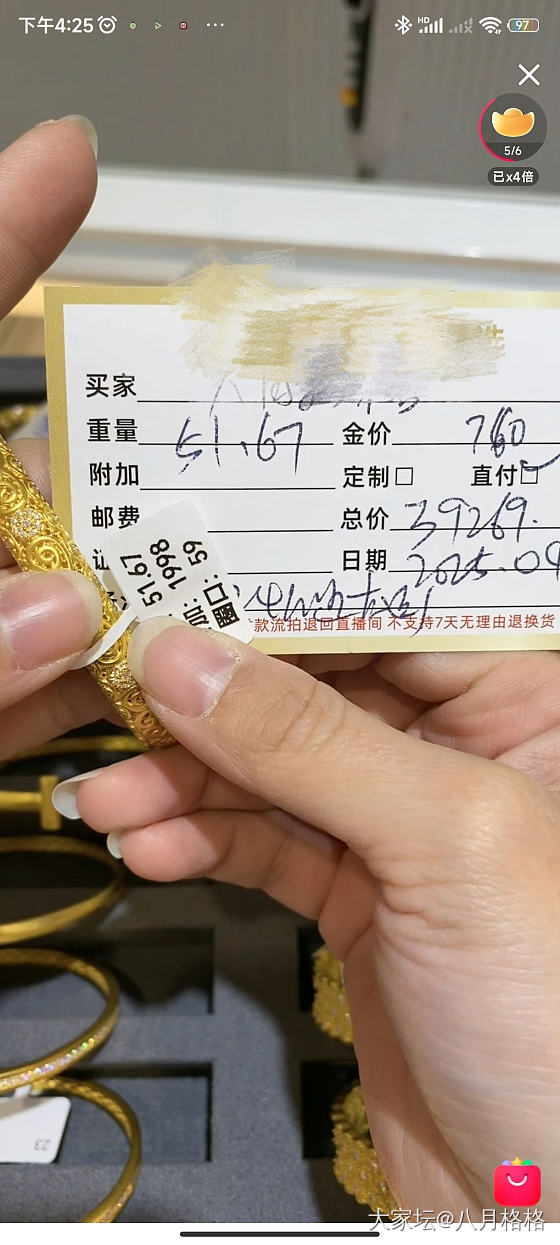 下午4:25
HD
97
5/6
已x4倍
买家
重量 51.67 金价 760
附加 定制 直付
邮费 总价 39269.
日期 2025.04
51.67
1998
口: 59
款流拍退回直播间 不支持7天无理由退换货
23
大家坛@八月格格